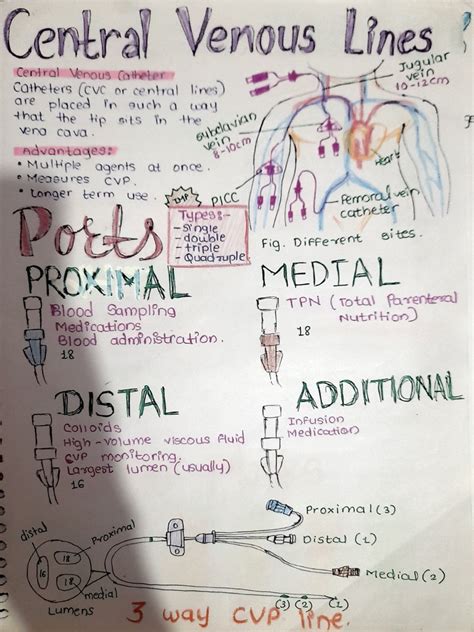 Central Venous Lines
Central Venous Catheter
Catheters (CVC or central lines)
are placed in such a way
that the tip sits in the
vena cava.
Advantages:
• Multiple agents at once.
• Measures CVP.
• Longer term use.
Jugular
vein
10-12cm
subclavian
vein
8-10cm
Heart
PICC
Femoral vein
catheter
Fig. Different sites.
Ports
IMP
Types:-
- Single
- double
- triple
- Quadruple
PROXIMAL
Blood Sampling
Medications
Blood administration.
18
MEDIAL
TPN (Total Parenteral
Nutrition)
18
DISTAL
Colloids
High-volume viscous fluid
CVP monitoring.
Largest lumen (usually)
16
ADDITIONAL
Infusion
Medication
distal
Proximal
18
16
18
medial
Lumens
Proximal (3)
Distal (1)
Medial (2)
(3) (2) (1)
3 way CVP line.